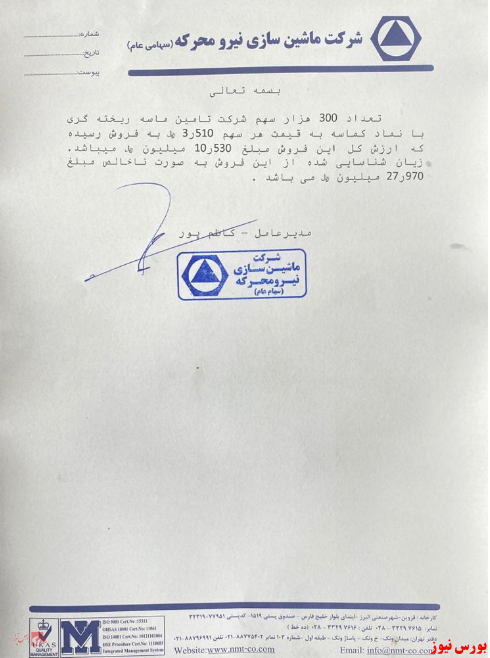 شرکت ماشین سازی نیرو محرکه (سهامی عام)
شماره:
تاریخ:
پیوست:
بسمه تعالی
تعداد 300 هزار سهم شرکت تامین ماسه ریخته گری
با نماد کماسه به قیمت هر سهم 510ر3 ریال به فروش رسیده
که ارزش کل این فروش مبلغ 530ر10 میلیون ریال میباشد.
زیان شناسایی شده از این فروش به صورت ناخالص مبلغ
970ر27 میلیون ریال می باشد .
مدیرعامل - کاظم پور
شرکت
ماشین سازی
نیرومحرکه
(سهام عام)
کارخانه : قزوین -شهرصنعتی البرز -ابتدای بلوار خلیج فارس - صندوق پستی ۱۵۱۹- کدپستی ۷۷۹۵۱-۳۴۳۱۹
نمابر: ۷۶۱۵ ۳۳۲۹ - ۰۲۸ تلفن: ۷۶۱۶ ۳۳۲۹ - ۰۲۸ (ده خط)
دفتر تهران: میدان ونک - خ ونک - پاساژ ونک - طبقه اول -شماره ۱۰۳ نمابر
Website:www.nmt-co.com
Email: info@nmt-co.com
UKAS
QUALITY
MANAGEMENT
NM
ISO 9001 Cert.No:
OHSAS 18001 Cert.No:
ISO 14001 Cert.No:
Integrated Management System
بورس نیوز